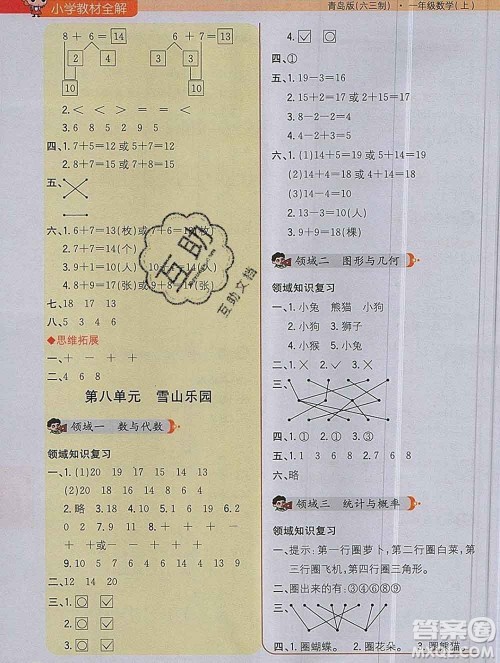 小学教材全解
青岛版(六三制)·一年级数学(上)
8 + 6 = 14
2 4
10
6 + 7 = 13
3 4
10
2. < < = > = >
3. 6 8 5 2 9 5
四、1. 7+5=12 或 5+7=12
2. 8+7=15 或 7+8=15
五、
六、1. 6+7=13(枚)或 7+6=13(枚)
2. 7+7=14(个)
3. 9+1=10(人) 10+1=11(人)
4. 8+9=17(张)或 9+8=17(张)
七、18 17 13
八、5 3 4 6
◆思维拓展
一、+ + − + −
二、4 6 8
第八单元 雪山乐园
领域一 数与代数
领域知识复习
一、1. (1)20 19 17 15 14 13
(2)20 18 16 14 12 10
2. 略 3. 10 18 5 4. 6 1 9
0 2 7 10 3 5. 15 13 6. +
− + + + 或− − + − −
二、12 14 20
三、1. □ ☑
2. ☑ □
3. ○ ☑
四、①
五、1. 19−3=16
2. 8−4−2=2
3. 8−2+1=7
4. 4−2+3=5
六、1. (1)14+5=19 或 5+14=19
(2)14+4=18 或 4+14=18
2. 14−4=10(人)
3. 9+9=18(棵)
领域二 图形与几何
领域知识复习
一、1. 小兔 熊猫 小狗
2. 小狗 3. 狮子
4. 小猴 5. 小兔
二、1. ✓ 2. ✓ 3. ✓ 4. ×
三、
四、1. ① 2. ① 3. ③
五、1 1 3 6 7 8 2
六、略
领域三 统计与概率
领域知识复习
一、提示:第一行圈萝卜,第二行圈白菜,第
三行圈飞机,第四行圈三角形。
二、圈出来的有:③④⑥⑧⑨
三、
四、1. 圈蝴蝶。 2. 圈花朵。 3. 圈熊猫。
互助
互助文档
答案圈
MXQE.COM